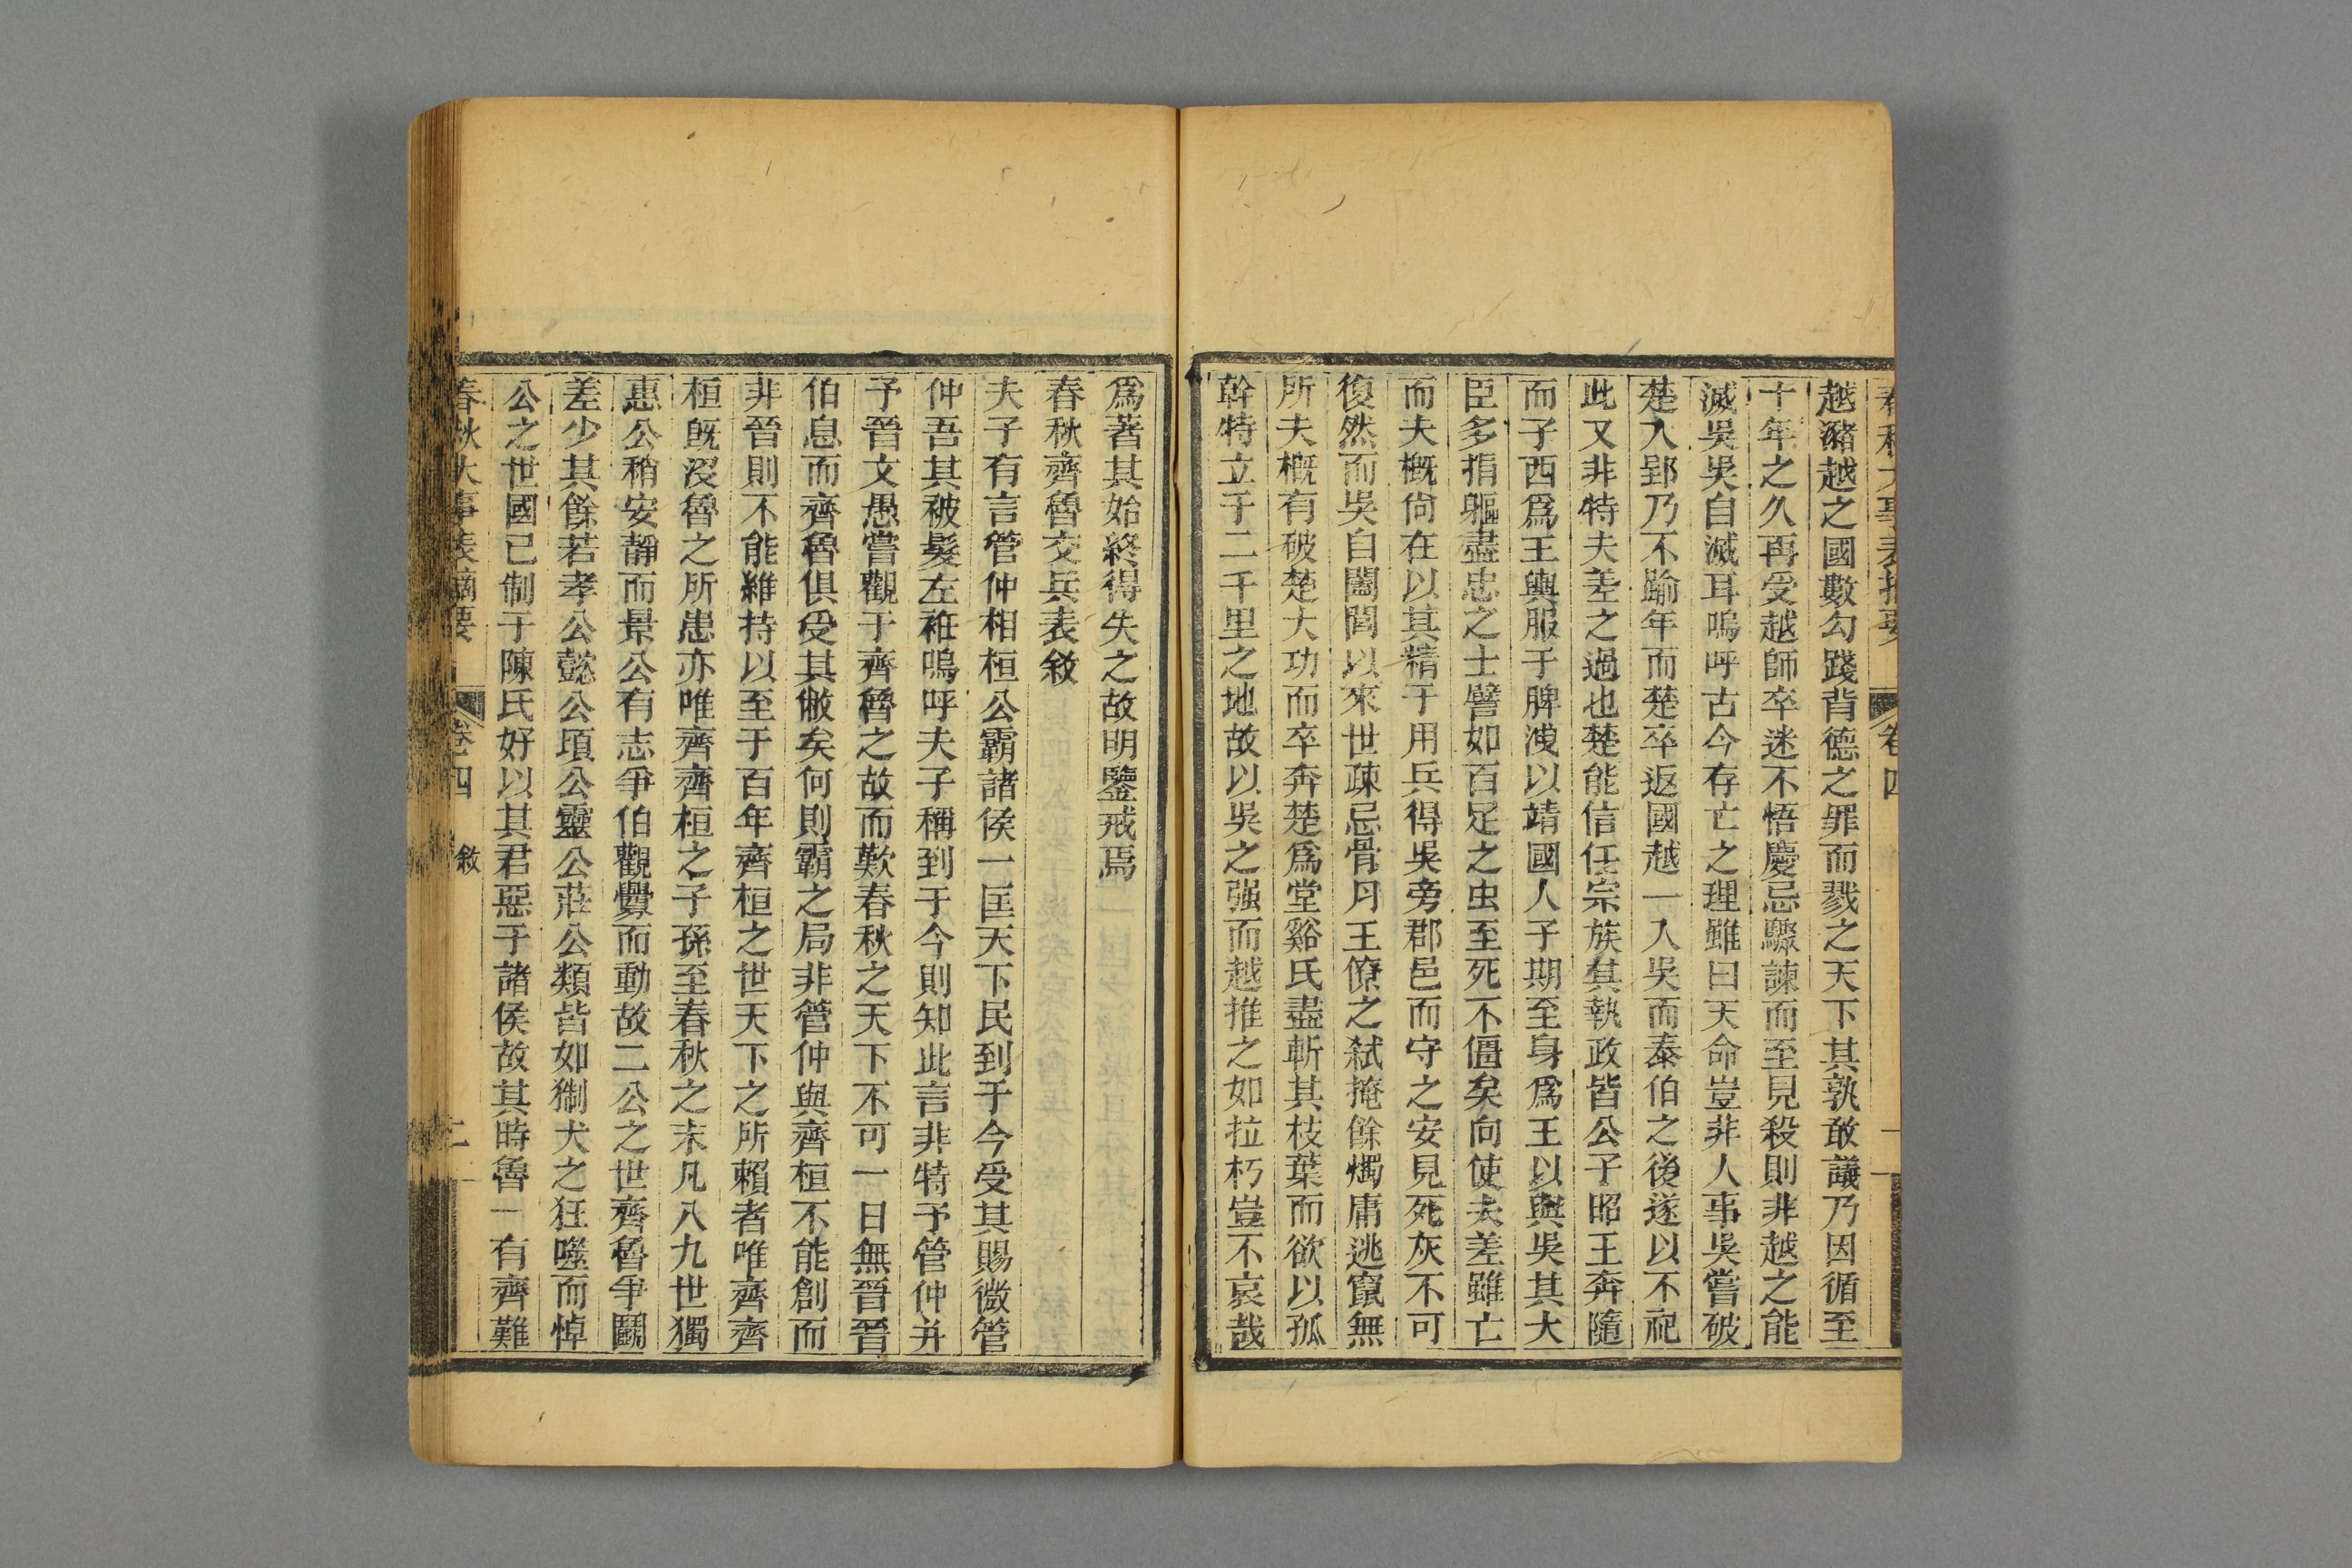 春秋大事表摘要 卷四
越瀦越之國數勾踐背德之罪而戮之天下其孰敢議乃因循至
十年之久再受越師卒迷不悟慶忌驟諫而至見殺則非越之能
滅吳吳自滅耳嗚呼古今存亡之理雖曰天命豈非人事吳嘗破
楚入郢乃不踰年而楚卒返國越一入吳而泰伯之後遂以不祀
此又非特夫差之過也楚能信任宗族其執政皆公子昭王奔隨
而子西爲王輿服于脾洩以靖國人子期至身爲王以與吳其大
臣多捐軀盡忠之士譬如百足之虫至死不僵矣向使夫差雖亡
而夫概尙在以其精于用兵得吳旁郡邑而守之安見死灰不可
復然而吳自闔閭以來世疎忌骨月王僚之弒掩餘燭庸逃竄無
所夫概有破楚大功而卒奔楚爲堂谿氏盡斬其枝葉而欲以孤
幹特立于二千里之地故以吳之强而越推之如拉朽豈不哀哉
爲著其始終得失之故明鑒戒焉
春秋齊魯交兵表敘
夫子有言管仲相桓公霸諸侯一匡天下民到于今受其賜微管
仲吾其被髮左衽嗚呼夫子稱到于今則知此言非特予管仲并
予晉文愚嘗觀于齊魯之故而歎春秋之天下不可一日無晉晉
伯息而齊魯俱受其敝矣何則霸之局非管仲與齊桓不能創而
非晉則不能維持以至于百年齊桓之世天下之所賴者唯齊齊
桓旣沒魯之所患亦唯齊齊桓之子孫至春秋之末凡八九世獨
惠公稍安靜而景公有志爭伯觀釁而動故二公之世齊魯爭鬭
差少其餘若孝公懿公頃公靈公莊公類皆如猘犬之狂噬而悼
公之世國已制于陳氏好以其君惡于諸侯故其時魯一有齊難
春秋大事表摘要 卷四 敘 二